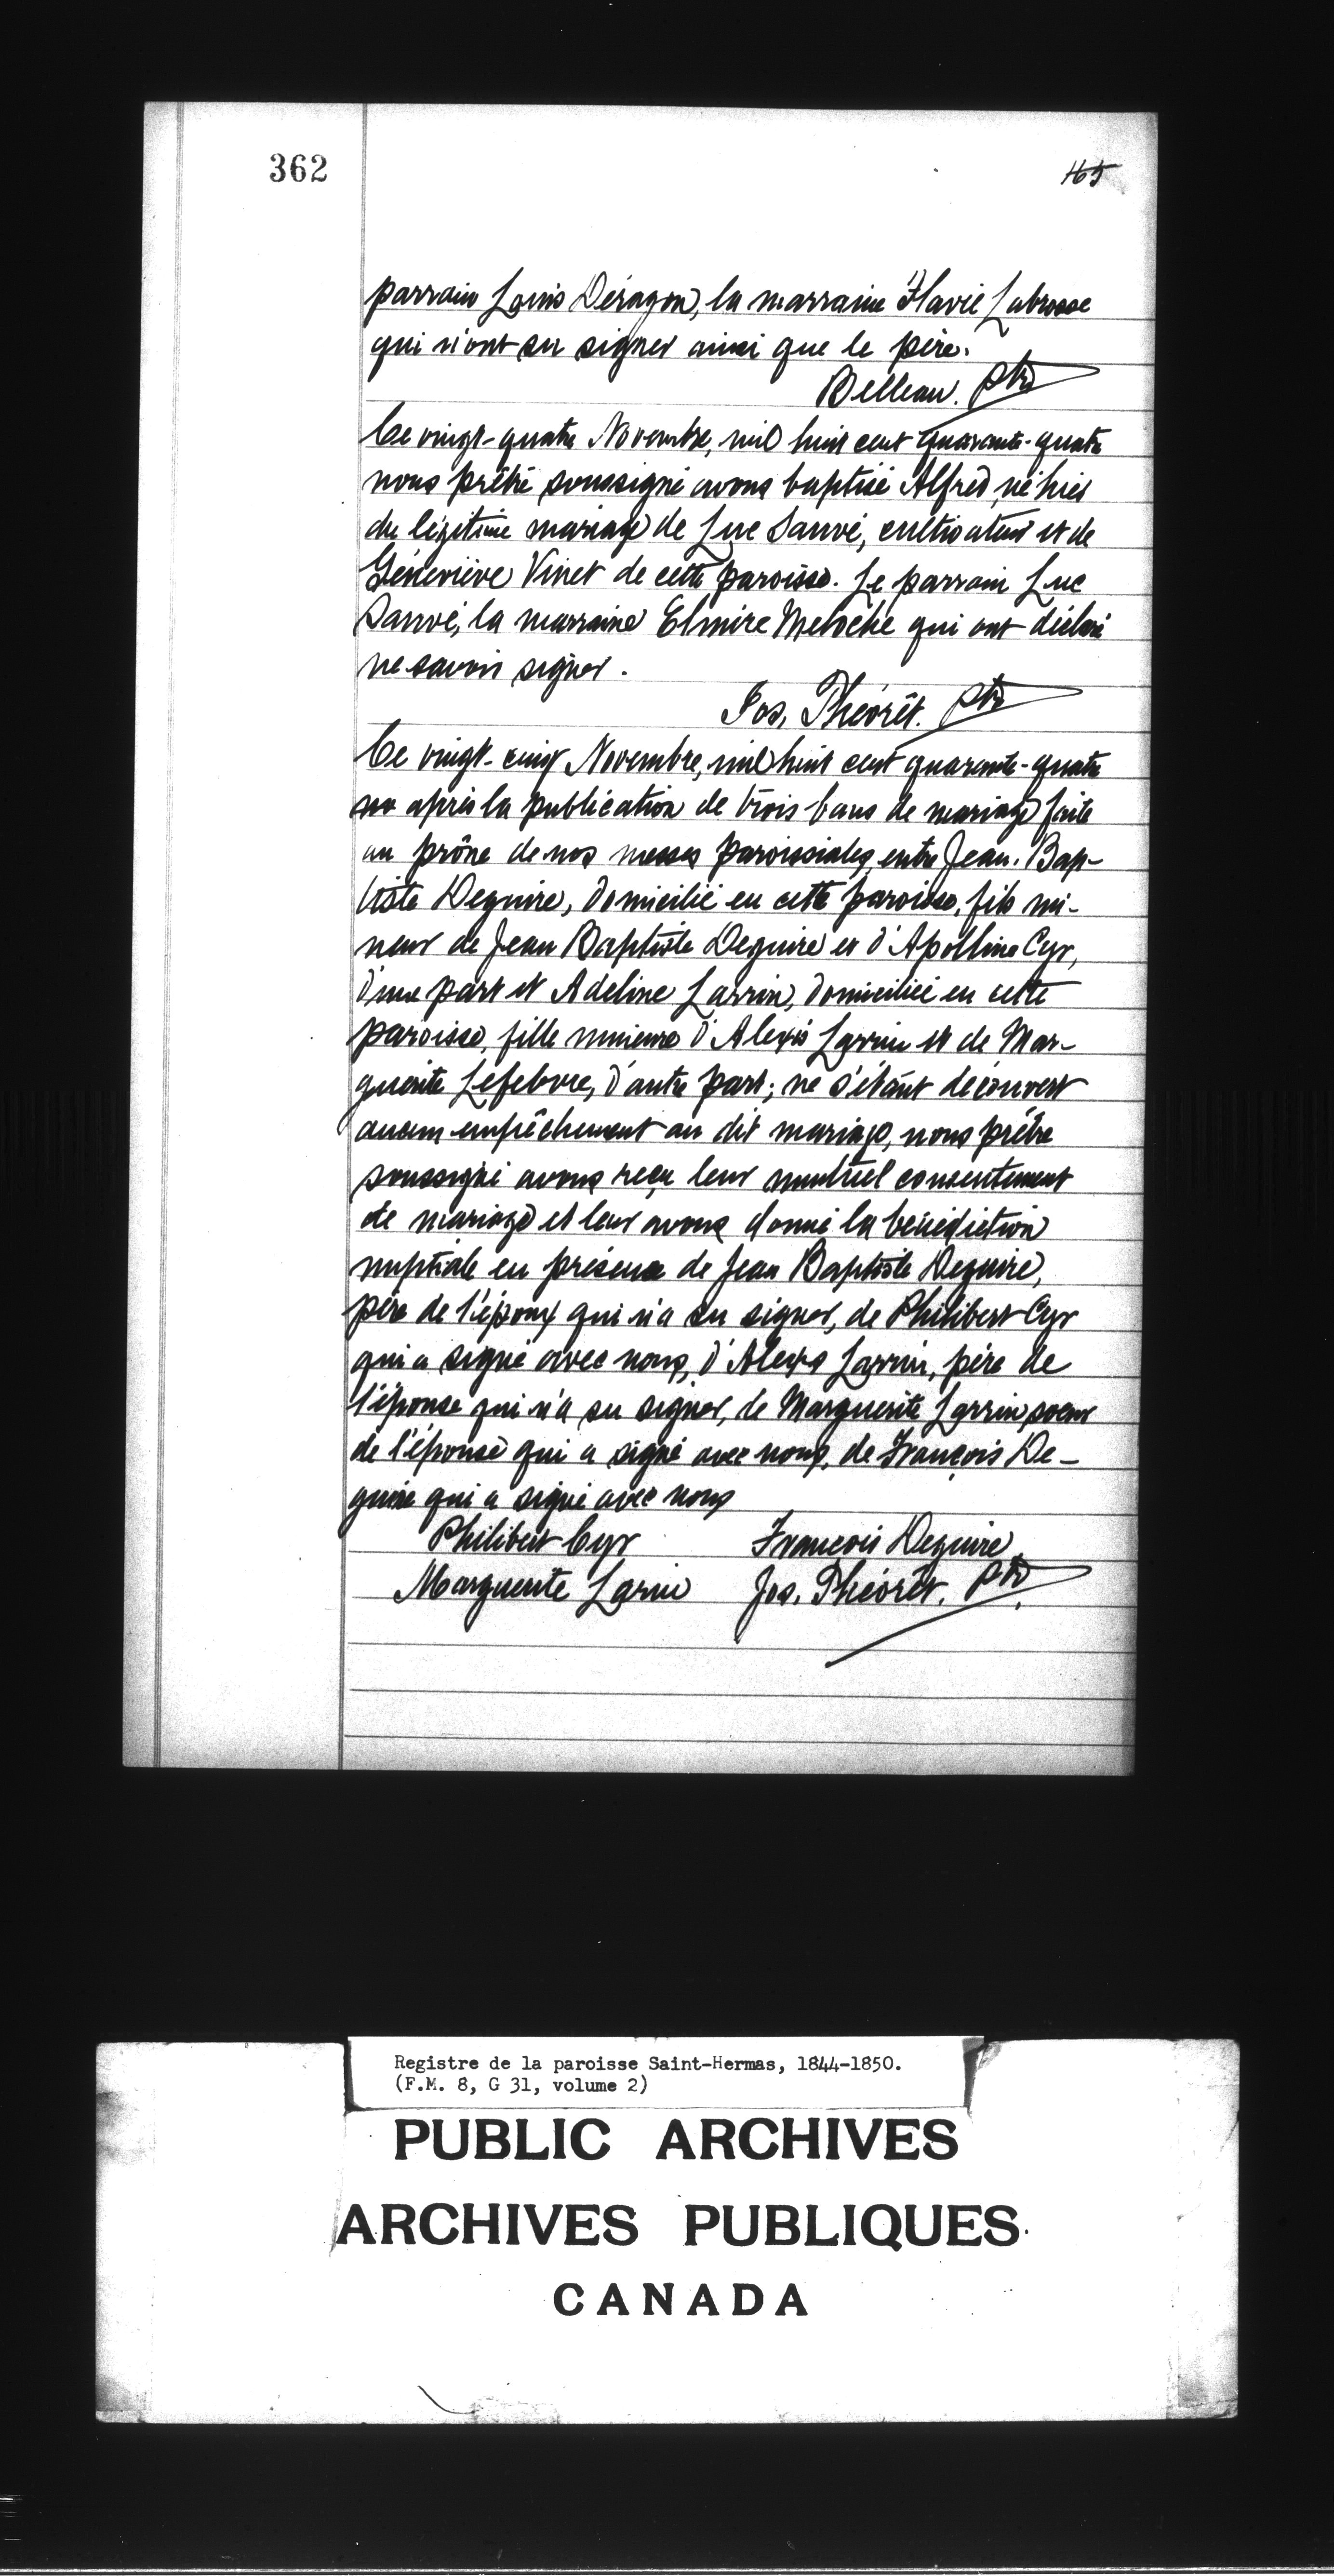 362
165
parrain Louis Déragon, la marraine Flavie Labrosse
qui n'ont su signer ainsi que le père.
Belleau. ptre
Ce vingt-quatre Novembre, mil huit cent quarante-quatre
nous prêtre soussigné avons baptisé Alfred, né hier
du légitime mariage de Luc Sauvé, cultivateur et de
Géneviève Vinet de cette paroisse. Le parrain Luc
Sauvé, la marraine Elmire Meloche qui ont déclaré
ne savoir signer.
Jos. Théorêt. ptre
Ce vingt-cinq Novembre, mil huit cent quarante-quatre
après la publication de trois bans de mariage faite
au prône de nos messes paroissiales, entre Jean-Bap-
tiste Deguire, domicilié en cette paroisse, fils mi-
neur de Jean Baptiste Deguire et d'Apolline Cyr,
d'une part et Adeline Larrin, domiciliée en cette
paroisse, fille mineure d'Alexis Larrin et de Mar-
guerite Lefebvre, d'autre part; ne s'étant découvert
aucun empêchement au dit mariage, nous prêtre
soussigné avons reçu leur mutuel consentement
de mariage et leur avons donné la bénédiction
nuptiale en présence de Jean Baptiste Deguire,
père de l'époux qui n'a su signer, de Philibert Cyr
qui a signé avec nous, d'Alexis Larrin, père de
l'épouse qui n'a su signer, de Marguerite Larrin, soeur
de l'épouse qui a signé avec nous, de François De-
guire qui a signé avec nous
Philibert Cyr François Deguire
Marguerite Larin Jos. Théorêt. ptre
Registre de la paroisse Saint-Hermas, 1844-1850.
(F.M. 8, G 31, volume 2)
PUBLIC ARCHIVES
ARCHIVES PUBLIQUES
CANADA